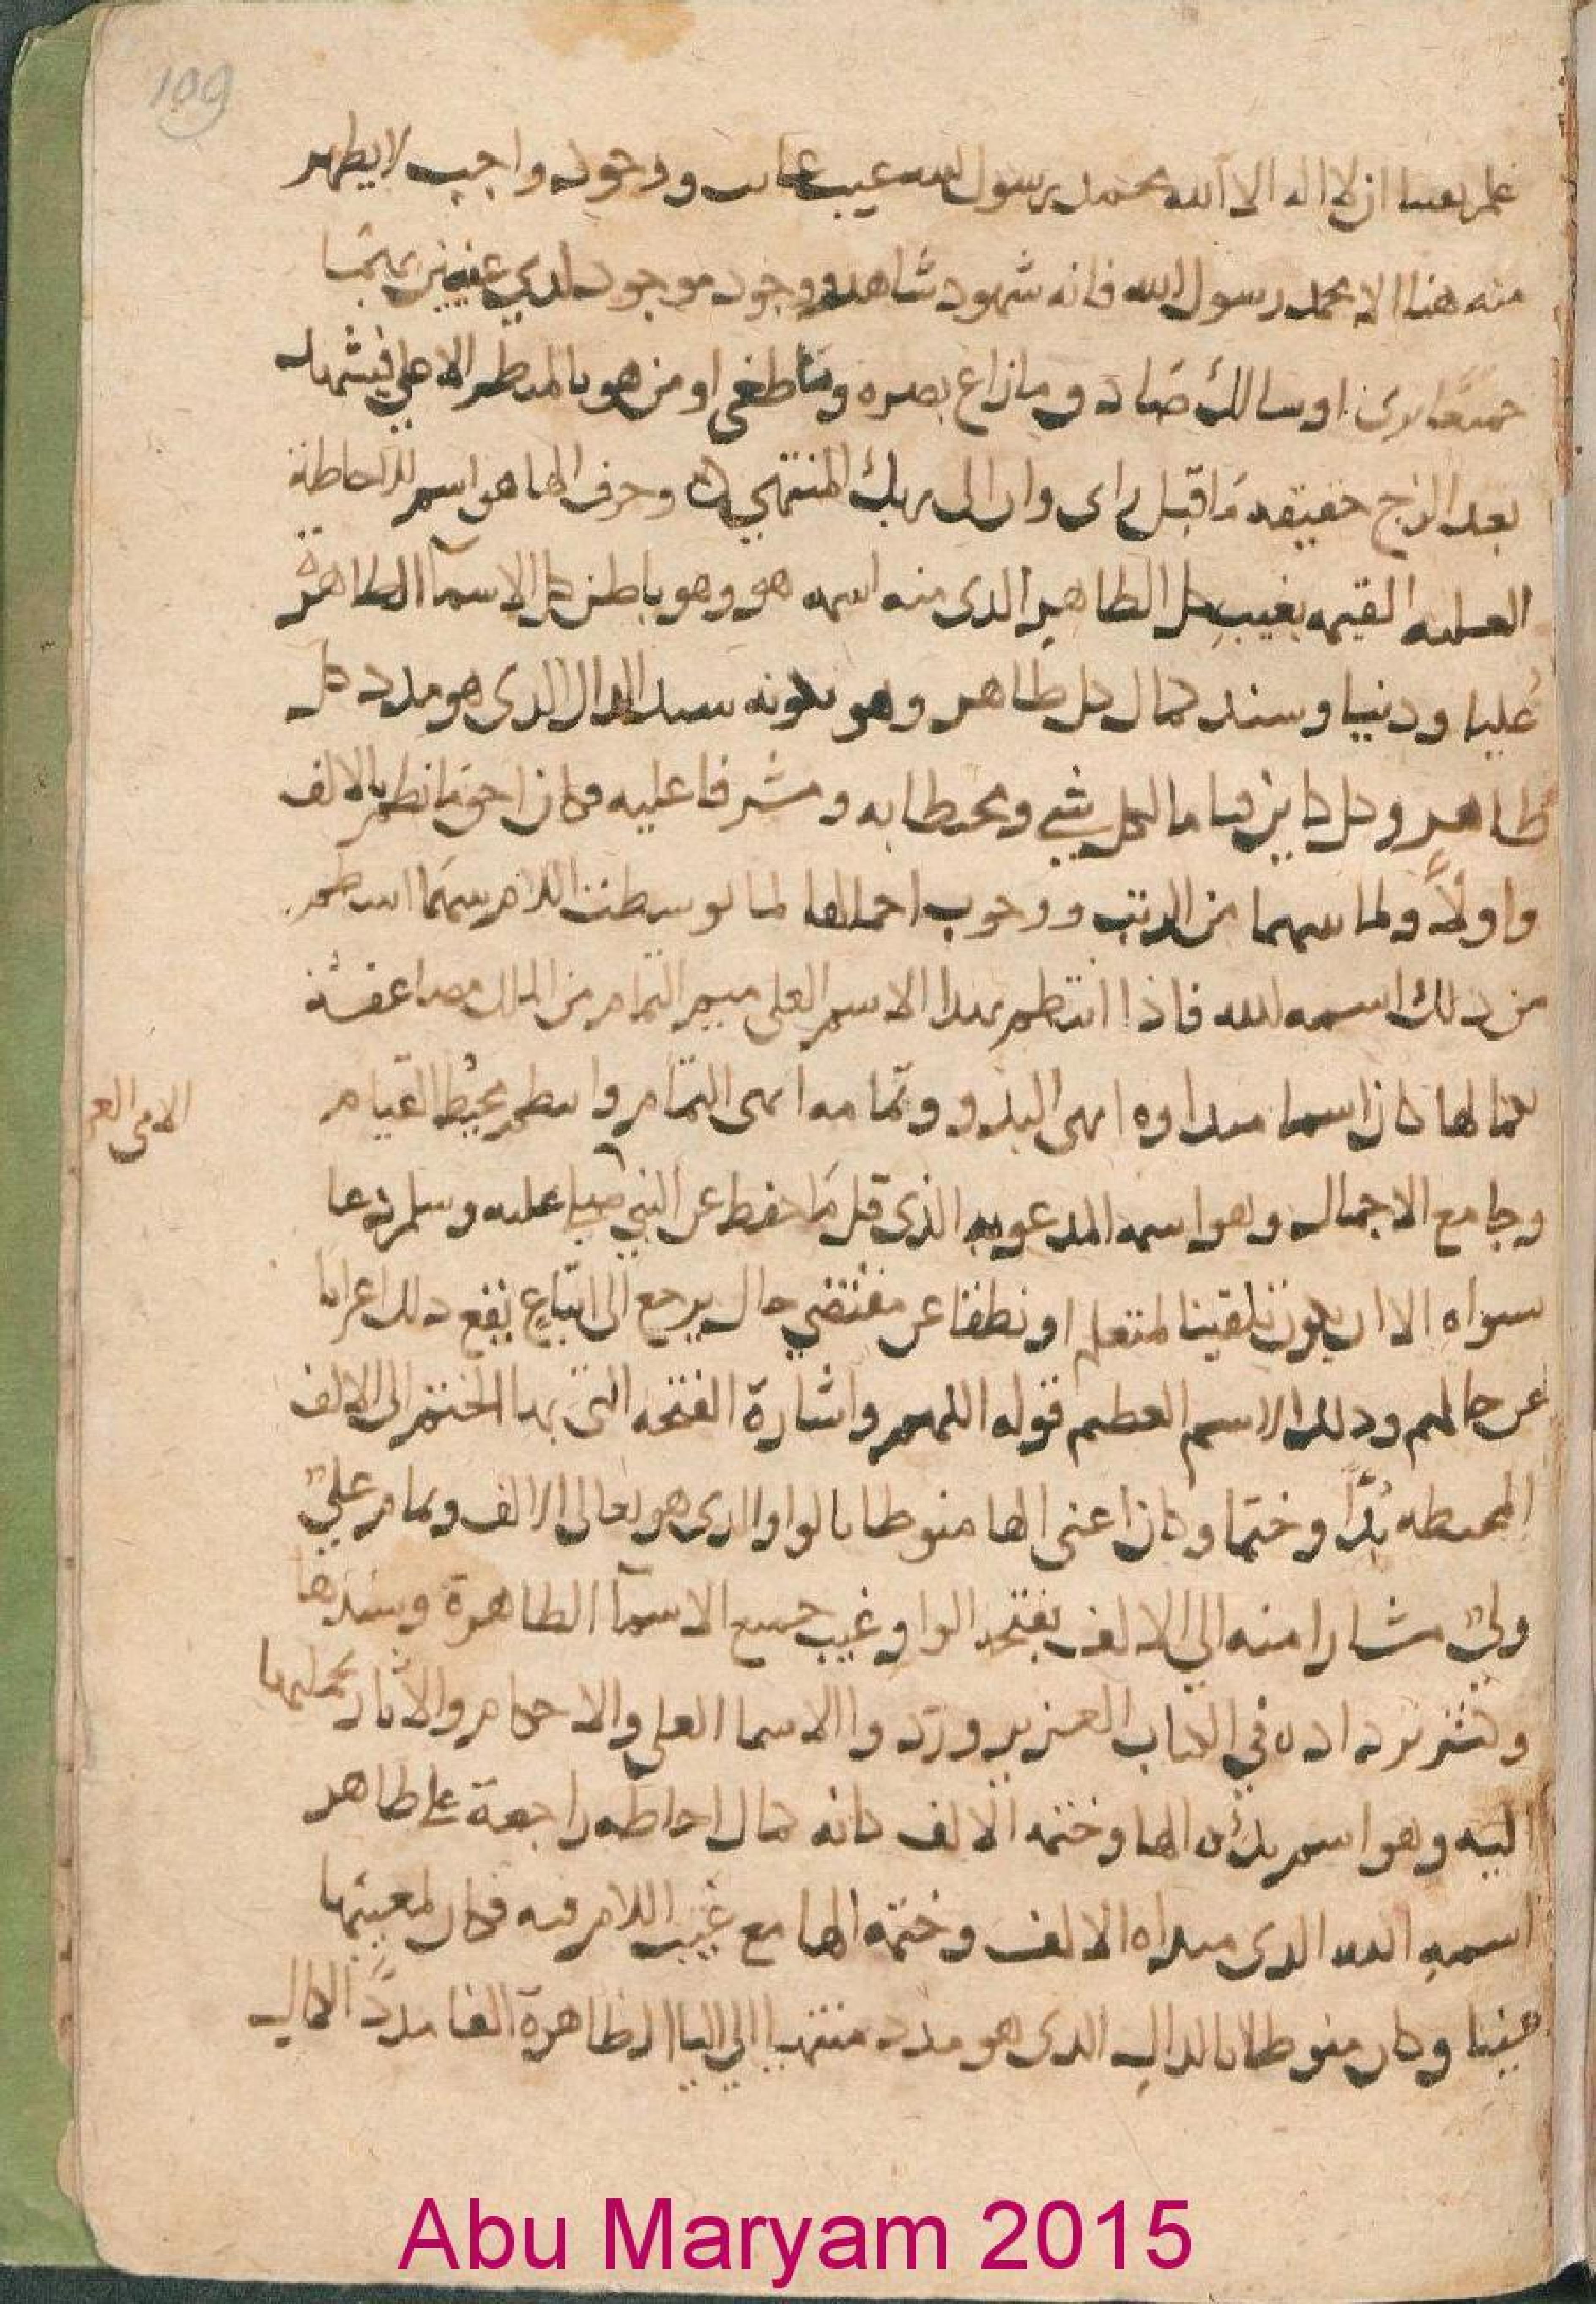 109
ان لا اله الا الله محمد رسول الله غيب غائب ووجود واجب لا يظهر
منه هنا الا محمد رسول الله فانه شهود شاهد ووجود موجود لدي
او سالك صاد وما زاغ بصره وما طغى او من هو بالمنظر الاعلى فيشهد
بعد حقيقة ما قبل راى وان الى ربك المنتهى وحرف الها هو اسم للاحاطة
القيمه بغيب كل الظاهر الذى منه اسمه هو وهو باطن كل الاسمآ الظاهرة
عليا ودنيا وسند كمال كل ظاهر وهو لكونه سند الدال الذى هو مدد كل
ظاهر وكل كاين قياما لكل شي ومحيطا به ومشرفا عليه فكان احق ما نظم بالالف
واولاً ولما بينهما من الرتب ووجوب اجمالها لما توسطت اللام بينهما انتظم
من ذلك اسمه الله فاذا انتظم بهذا الاسم العلى ميم التمام من الملك مضاعفة
كان اسما مبداوه ابهى البدو وتمامه ابهى التمام وانتظم محيط القيام
الامى العر
وجامع الاجمال وهو اسمه المدعو به الذى قل ما حفظ عن النبي صلى عليه وسلم دعا
سواه الا ان يكون تلقينا لمتعلم او نطقا عن مقتضي حال يرجع الى اتباع يقع ذلك اعرابا
عن حالهم وذلك الاسم العظيم قوله اللهم واشارة الفتحه التى بها الختم الى الالف
المحيطه بدًا وختما وكان اعنى الها منوطا بالواو الذى هو تعالى الالف وبما مر علي
ولي مشارا منه الي الالف بفتحة الواو غيب جميع الاسمآ الظاهرة وسندها
ولتكثر ترداده في الكتاب العزيز وردوا الاسما العلى والاحكام والاثار بجملتها
اليه وهو اسم بدأه الها وختمه الالف كانه كمال احاطه راجعة على ظاهر
اسمه الله الذى مبداه الالف وختمه الها مع غيب اللام فيه فكان لمعينها
وكان منوطا بالدال الذى هو مدد منتهيا الي اليا الظاهرة الفا مددًا لكمال
Abu Maryam 2015